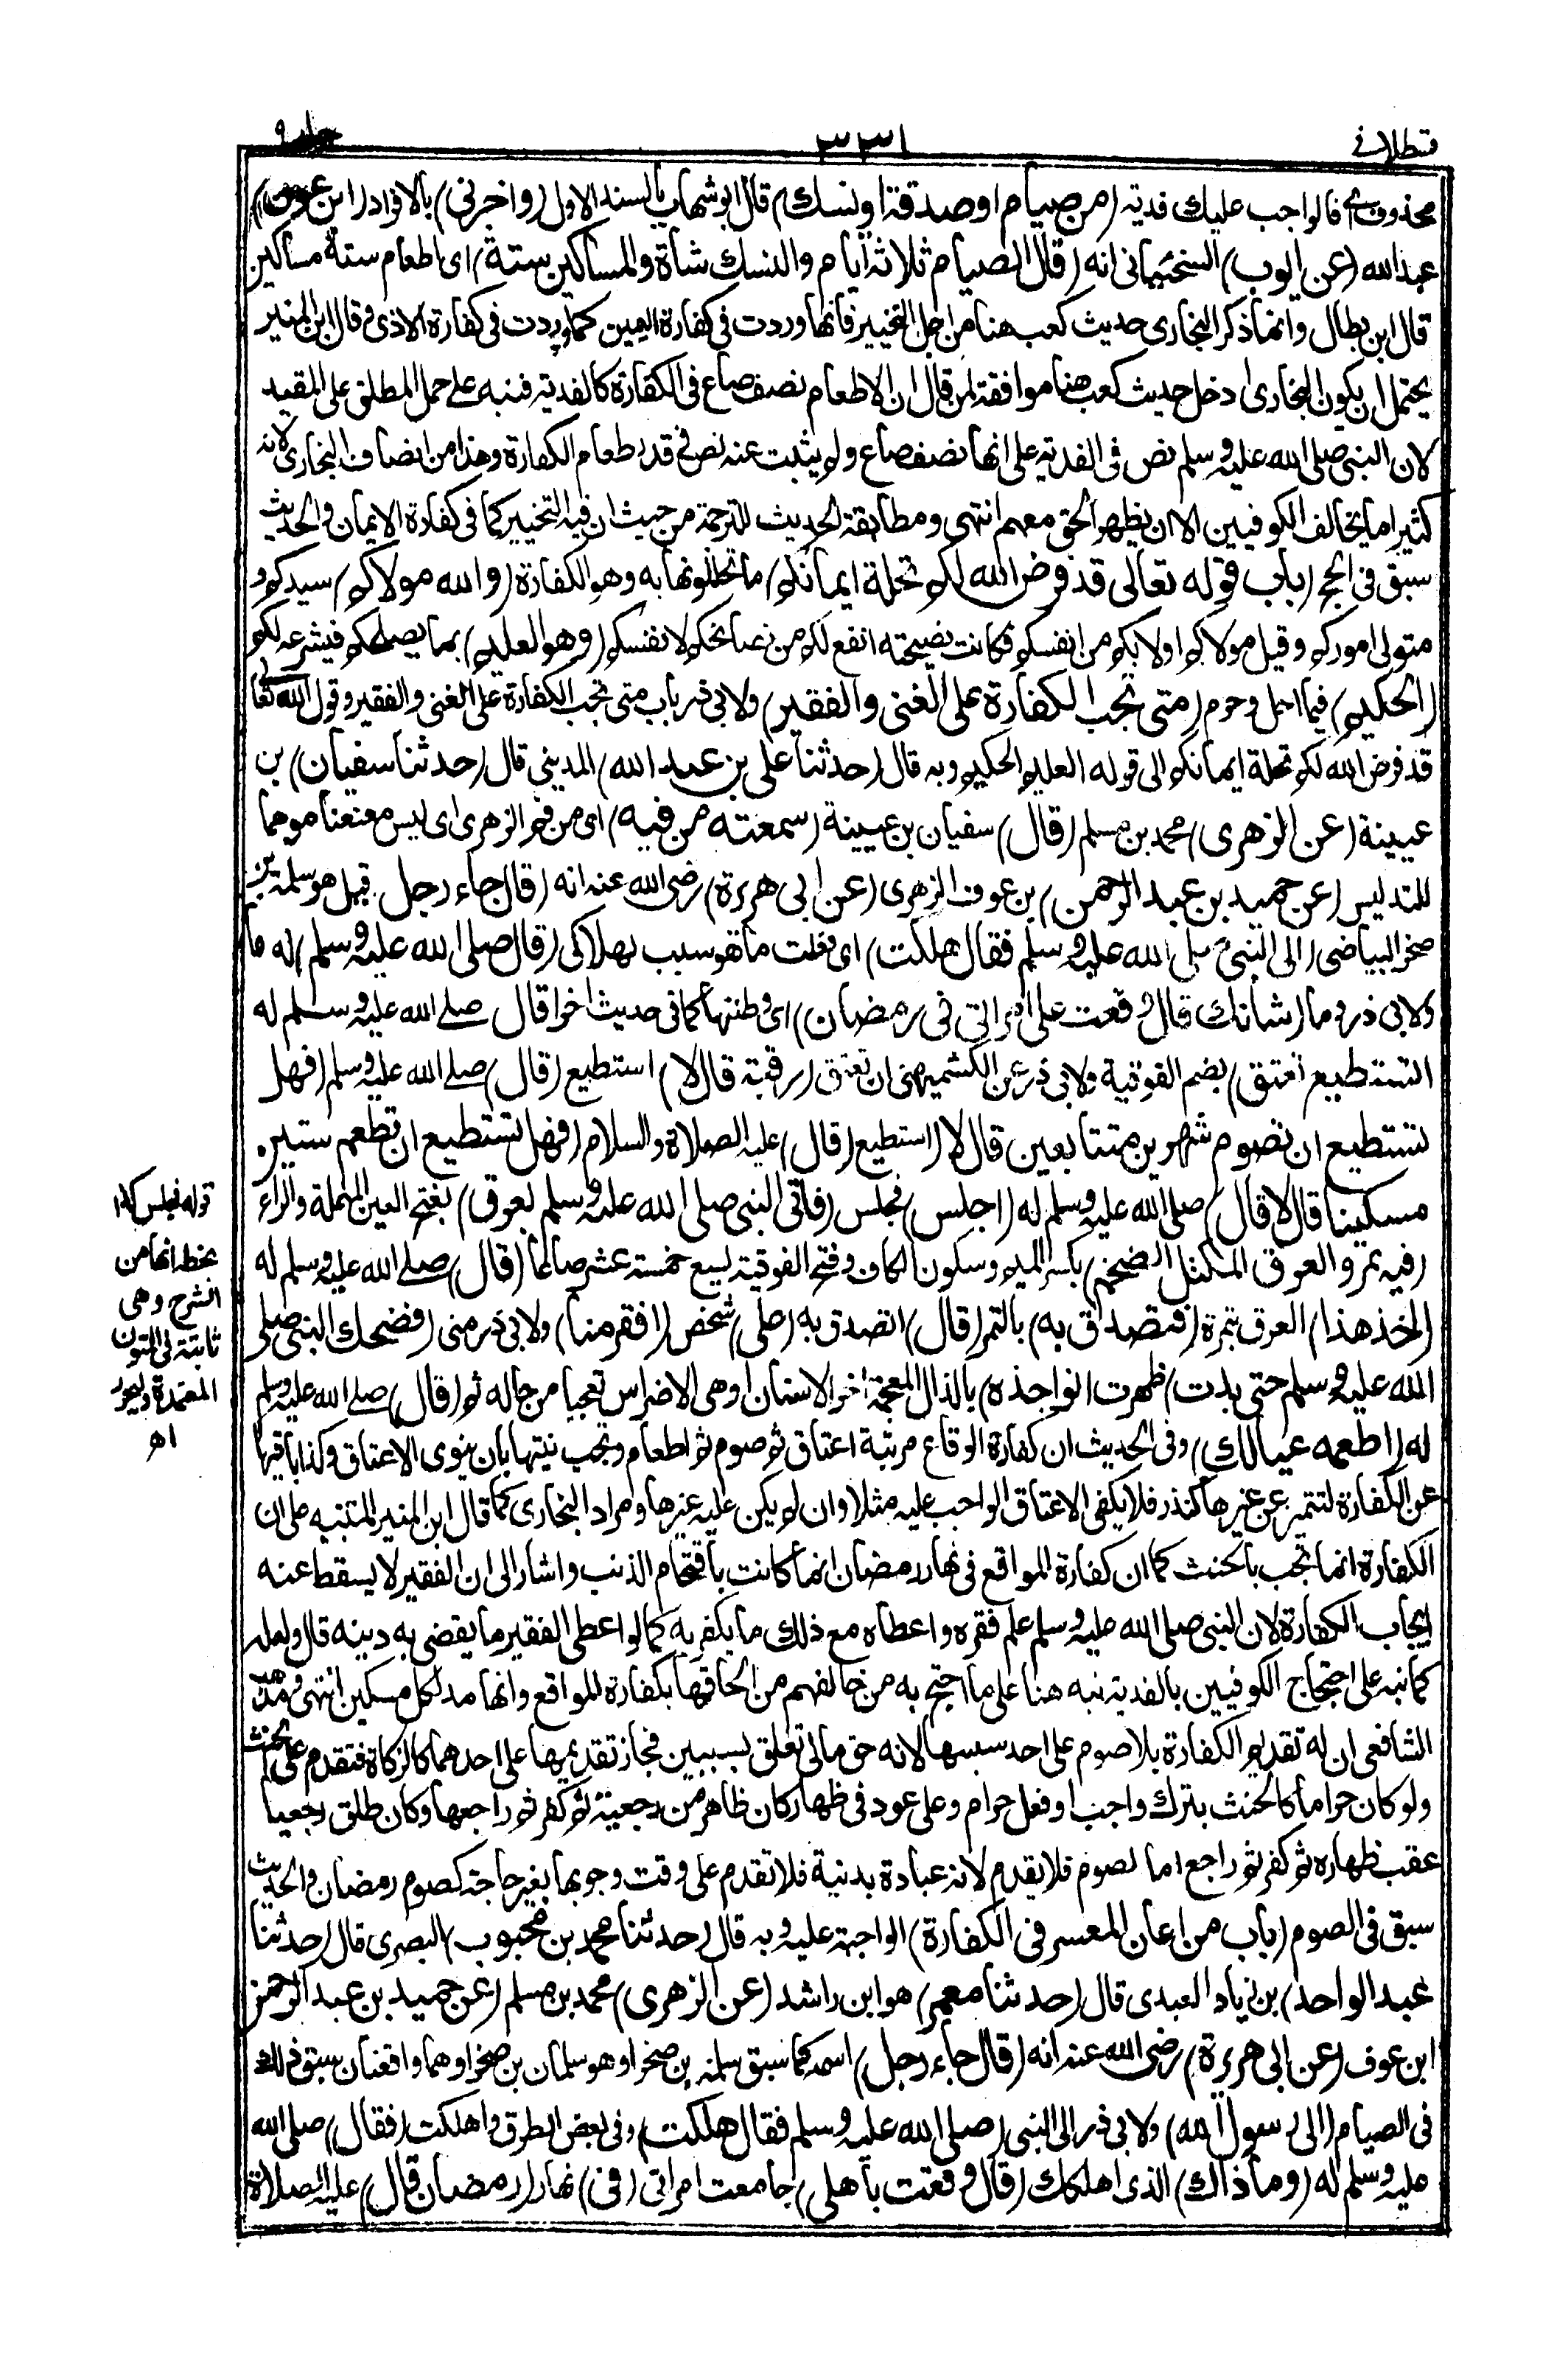 قسطلانى
٣٣١
جلد ٩
محذوف اى فالواجب عليك فدية (من صيام او صدقة او نسك) قال ابو شهاب بالسند الاول (واخبرنى) بالافراد (ابن عون)
عبد الله (عن ايوب) السختيانى انه (قال الصيام ثلاثة ايام والنسك شاة والمساكين ستة) اى اطعام ستة مساكين
قال ابن بطال وانما ذكر البخارى حديث كعب هنا من اجل التخيير فانها وردت فى كفارة اليمين كما وردت فى كفارة الاذى وقال ابن المنير
يحتمل ان يكون البخارى ادخل حديث كعب هنا موافقة لمن قال ان الاطعام نصف صاع فى الكفارة كالفدية فنبه على حمل المطلق على المقيد
لان النبى صلى الله عليه وسلم نص فى الفدية على انها نصف صاع ولم يثبت عنه نص فى قدر طعام الكفارة وهذا من انصاف البخارى لانه
كثيرا ما يخالف الكوفيين الا ان يظهر الحق معهم انتهى ومطابقة الحديث للترجمة من حيث ان فيه التخيير كما فى كفارة الايمان والحديث
سبق فى الحج (باب قوله تعالى قد فرض الله لكم تحلة ايمانكم) ما تحللونها به وهو الكفارة (والله مولاكم) سيدكم و
متولى اموركم وقيل مولاكم اولا بكم من انفسكم فكانت نصيحته انفع لكم من نصائحكم لانفسكم (وهو العليم) بما يصلحكم فيشرعه لكم
(الحكيم) فيما احل وحرم (متى تجب الكفارة على الغنى والفقير) ولابى ذر باب متى تجب الكفارة على الغنى والفقير وقول الله تعالى
قد فرض الله لكم تحلة ايمانكم الى قوله العليم الحكيم وبه قال (حدثنا على بن عبد الله) المدينى قال (حدثنا سفيان) بن
عيينة (عن الزهرى) محمد بن مسلم (قال) سفيان بن عيينة (سمعته من فيه) اى من فم الزهرى اى ليس معنعنا موهما
للتدليس (عن حميد بن عبد الرحمن) بن عوف الزهرى (عن ابى هريرة) رضى الله عنه انه (قال جاء رجل) قيل هو سلمة بن
صخر البياضى (الى النبى صلى الله عليه وسلم فقال هلكت) اى فعلت ما هو سبب لهلاكى (قال صلى الله عليه وسلم) له ما
ولابى ذر وما (شأنك قال وقعت على امرأتى فى رمضان) اى وطئتها كما فى حديث اخر (قال) صلى الله عليه وسلم له
(تستطيع تعتق) بضم الفوقية ولابى ذر عن الكشميهنى ان تعتق (رقبة قال لا) استطيع (قال) صلى الله عليه وسلم (فهل
تستطيع ان تصوم شهرين متتابعين قال لا) استطيع (قال) عليه الصلاة والسلام (فهل تستطيع ان تطعم ستين
مسكينا قال لا قال) صلى الله عليه وسلم له (اجلس) فجلس (فاتى النبى صلى الله عليه وسلم بعرق) بفتح العين المهملة والراء
(فيه تمر والعرق المكتل الضخم) بكسر الميم وسكون الكاف وفتح الفوقية يسع خمسة عشر صاعا (قال) صلى الله عليه وسلم له
(خذ هذا) العرق بتمرة (فتصدق به) بالتمر (قال) اتصدق به (على) شخص (افقر منا) ولابى ذر منى (فضحك النبى صلى
الله عليه وسلم حتى بدت) ظهرت (نواجذه) بالذال المعجمة اخر الاسنان او هى الاضراس تعجبا من حاله ثم (قال) صلى الله عليه وسلم
له (اطعمه عيالك) وفى الحديث ان كفارة الوقاع مرتبة اعتاق ثم صوم ثم اطعام وتجب نيتها بان ينوى الاعتاق وكذا باقيها
عن الكفارة لتتميز عن غيرها كنذر فلا يكفى الاعتاق الواجب عليه مثلا وان لم يكن عليه غيرها ومراد البخارى كما قال ابن المنير التنبيه على ان
الكفارة انما تجب بالحنث كما ان كفارة المواقع فى نهار رمضان انما كانت باقتحام الذنب واشار الى ان الفقير لا يسقط عنه
ايجاب الكفارة لان النبى صلى الله عليه وسلم علم فقره واعطاه مع ذلك ما يكفر به كما لو اعطى الفقير ما يقضى به دينه قال ولعله
كما نبه على احتجاج الكوفيين بالفدية نبه هنا على ما احتج به من خالفهم من الحاقها بكفارة المواقع وانها مد لكل مسكين انتهى ومذهب
الشافعى ان له تقديم الكفارة بلا صوم على احد سببيها لانه حق مالى تعلق بسببين فجاز تقديمها على احدهما كالزكاة فتقدم على الحنث
ولو كان حراما كالحنث بترك واجب او فعل حرام وعلى عود فى ظهار كان ظاهر من رجعية ثم كفر ثم راجعها وكان طلق رجعيا
عقب ظهاره ثم كفر ثم راجع اما الصوم فلا يقدم لانه عبادة بدنية فلا تقدم على وقت وجوبها بغير حاجة كصوم رمضان والحديث
سبق فى الصوم (باب من اعان المعسر فى الكفارة) الواجبة عليه وبه قال (حدثنا محمد بن محبوب) البصرى قال (حدثنا
عبد الواحد) بن زياد العبدى قال (حدثنا معمر) هو ابن راشد (عن الزهرى) محمد بن مسلم (عن حميد بن عبد الرحمن
ابن عوف (عن ابى هريرة) رضى الله عنه انه (قال جاء رجل) اسمه كما سبق سلمة بن صخر او هو سلمان بن صخر او هما واقعتان سبق ذلك
فى الصيام (الى رسول الله) ولابى ذر الى النبى (صلى الله عليه وسلم فقال هلكت) وفى بعض الطرق واهلكت (فقال) صلى الله
عليه وسلم له (وما ذاك) الذى اهلكك (قال وقعت باهلى) جامعت امرأتى (فى) نهار (رمضان قال) عليه الصلاة
قوله فجلس كذا
بخطه انها من
الشرح وهى
ثابتة فى المتون
المعتمدة وليحرر
اه